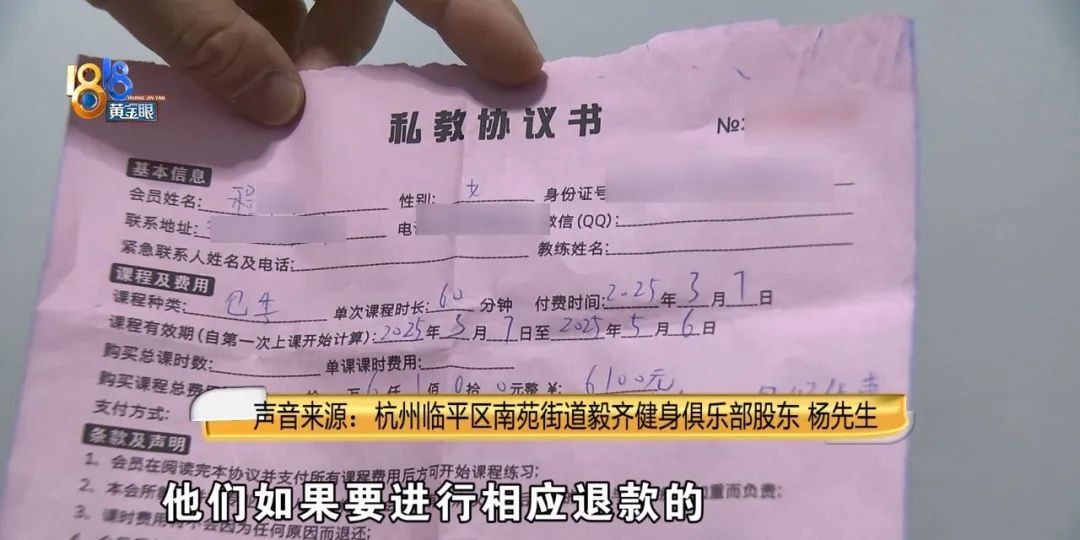 1818
HUANG JIN YAN
黄金眼
私教协议书 №:
基本信息
会员姓名: 程 性别: 女 身份证号
联系地址: 电 微信(QQ):
紧急联系人姓名及电话: 教练姓名:
课程及费用
课程种类: 包年 单次课程时长: 60 分钟 付费时间: 2025年3月7日
课程有效期(自第一次上课开始计算): 2025年3月7日至2025年5月6日
购买总课时数: 单课课时费用:
购买课程总费用 万6仟1佰0拾0元整 ¥: 6100元
支付方式:
声音来源: 杭州临平区南苑街道毅齐健身俱乐部股东 杨先生
条款及声明
1、会员在阅读完本协议并支付所有课程费用后方可开始课程练习;
2、本会所教 和重而负责;
3、课时费用 不会因为任何原因而退还;
他们如果要进行相应退款的